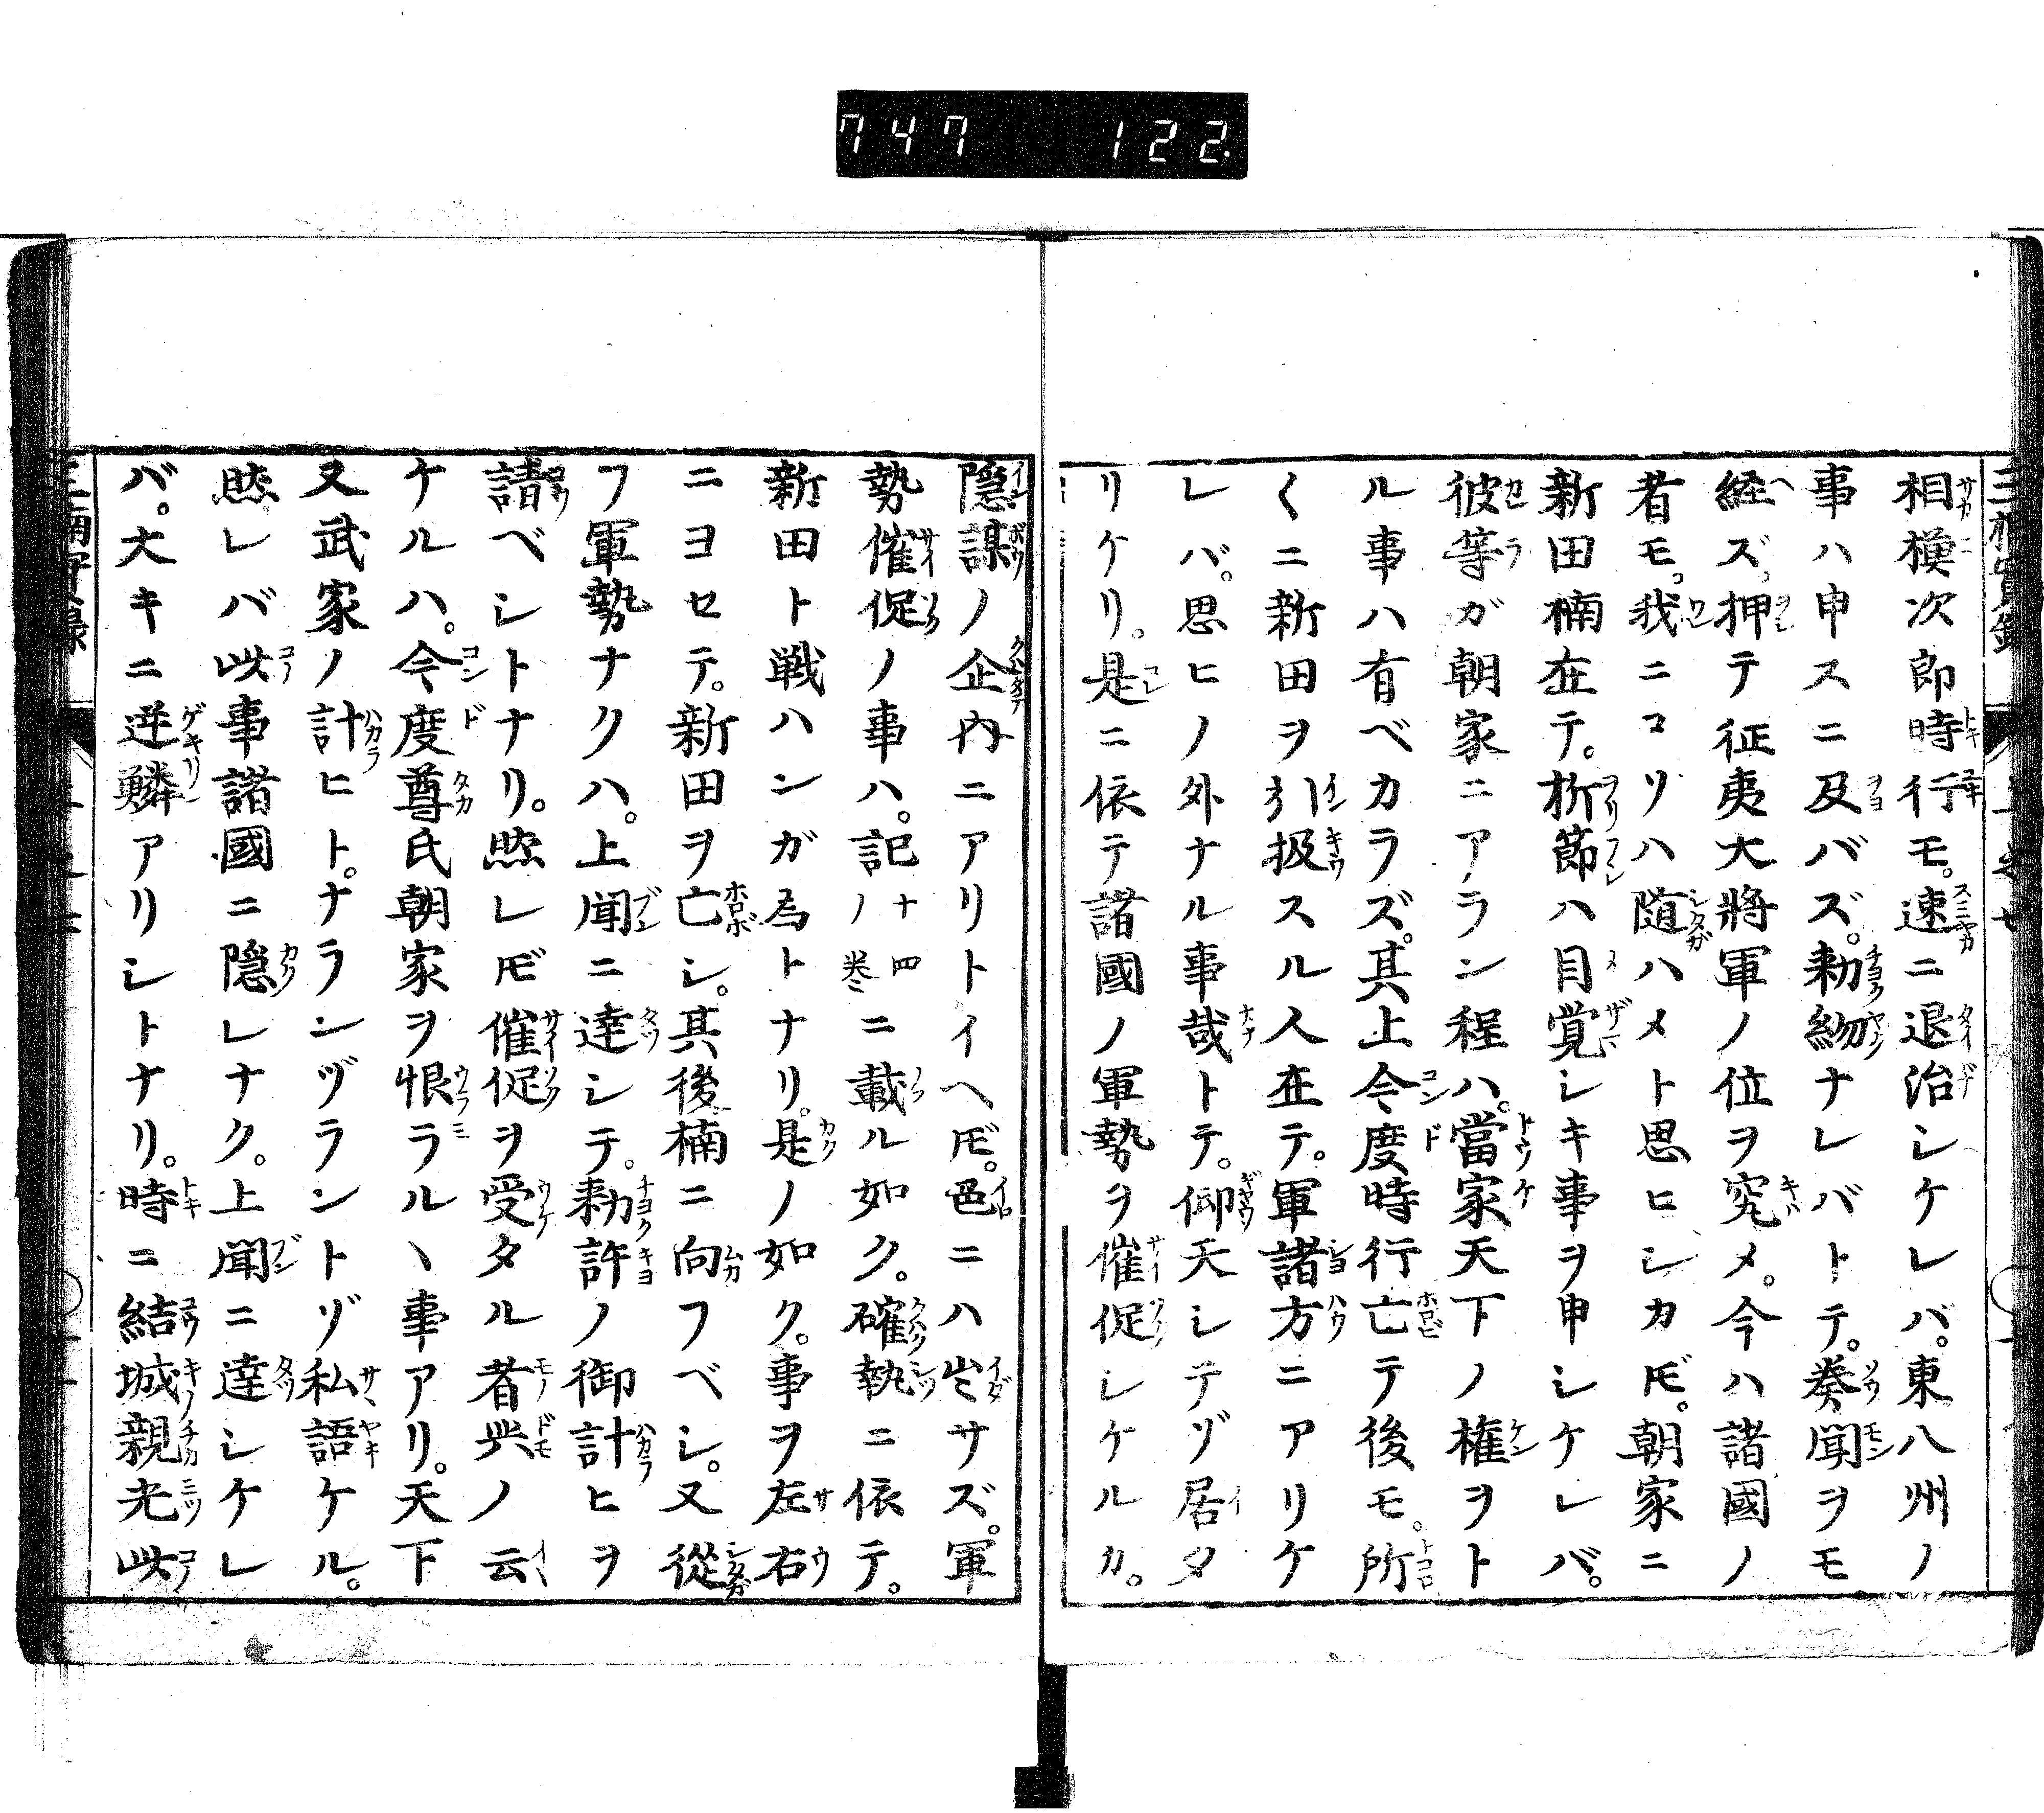 747 122
相模次郎時行モ。速ニ退治シケレバ。東八州ノ
事ハ申スニ及バズ。勅物ナレバトテ。奏聞ヲモ
経ズ。押テ征夷大將軍ノ位ヲ究メ。今ハ諸國ノ
者モ。我ニコリハ随ハメト思ヒシカ𪜈。朝家ニ
新田楠在テ。折節ハ目覚シキ事ヲ申シケレバ。
彼等ガ朝家ニアラン程ハ。當家天下ノ権ヲト
ル事ハ有ベカラズ。其上今度時行亡テ後モ。所
〱ニ新田ヲ引扱スル人在テ。軍諸方ニアリケ
レバ。思ヒノ外ナル事哉トテ。仰天シテゾ居タ
リケリ。是ニ依テ諸國ノ軍勢ヲ催促シケルカ。
隠謀ノ企内ニアリトイヘ𪜈。色ニハ出サズ。軍
勢催促ノ事ハ。記十四ノ巻ニ載ル如ク。確執ニ依テ。
新田ト戦ハンガ為トナリ。是ノ如ク。事ヲ左右
ニヨセテ。新田ヲ亡シ。其後楠ニ向フベシ。又從
フ軍勢ナクハ。上聞ニ達シテ。勅許ノ御計ヒヲ
請ベシトナリ。然レ𪜈催促ヲ受タル者共ノ云
ケルハ。今度尊氏朝家ヲ恨ラルヽ事アリ。天下
又武家ノ計ヒト。ナランヅラントゾ私語ケル。
然レバ此事諸國ニ隠レナク。上聞ニ達シケレ
バ。大キニ逆鱗アリシトナリ。時ニ結城親光此